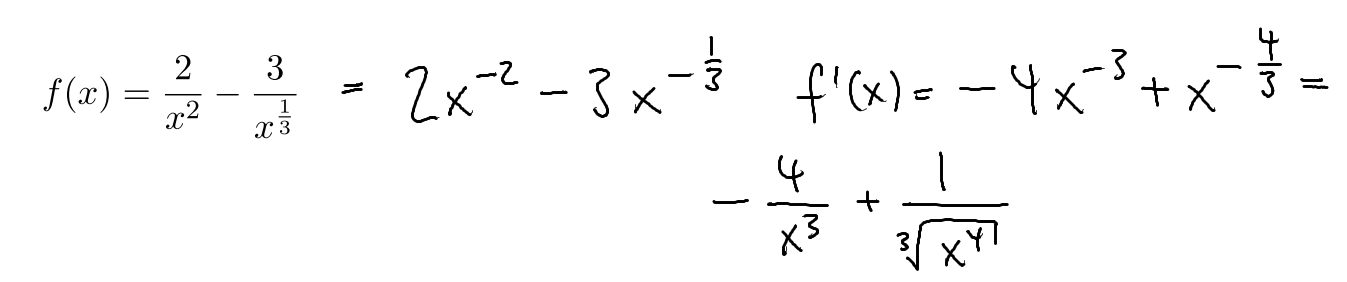 f(x) = \frac{2}{x^2} - \frac{3}{x^{\frac{1}{3}}} = 2x^{-2} - 3x^{-\frac{1}{3}} f'(x) = -4x^{-3} + x^{-\frac{4}{3}} =
-\frac{4}{x^3} + \frac{1}{\sqrt[3]{x^4}}